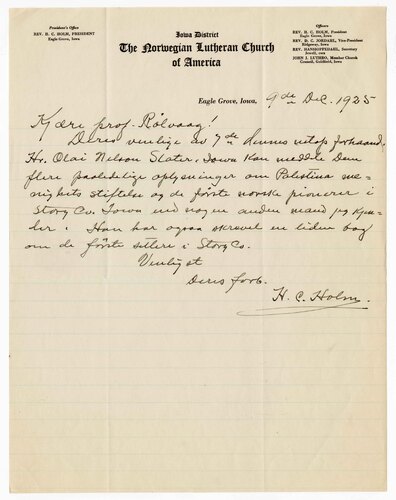 President's Office
REV. H. C. HOLM, PRESIDENT
Eagle Grove, Iowa
Iowa District
The Norwegian Lutheran Church
of America
Officers
REV. H. C. HOLM, President
Eagle Grove, Iowa
REV. D. C. JORDAHL, Vice-President
Ridgeway, Iowa
Secretary
Jewell, Iowa
JOHN J. Member Church
Council, Goldfield, Iowa
Eagle Grove, Iowa, 9de Dec. 1925
Kjære prof. Rølvaag!
Deres venlige av 7de dennes netop forhaand.
Hr. Olai Nelson Slater, Iowa kan meddele Dem
flere paalidelige oplysninger om Palestina me-
nigheds stiftelse og de første norske pionerer i
Story Co. Iowa end nogen anden mand jeg kjen-
der. Han har ogsaa skrevet en liden bog
om de første settlere i Story Co.
Venligst
Deres forb.
H. C. Holm.